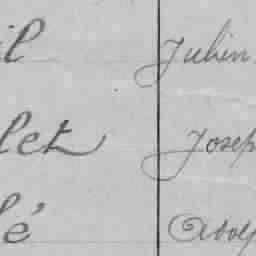 il Julien
let Josep
lé Adolp